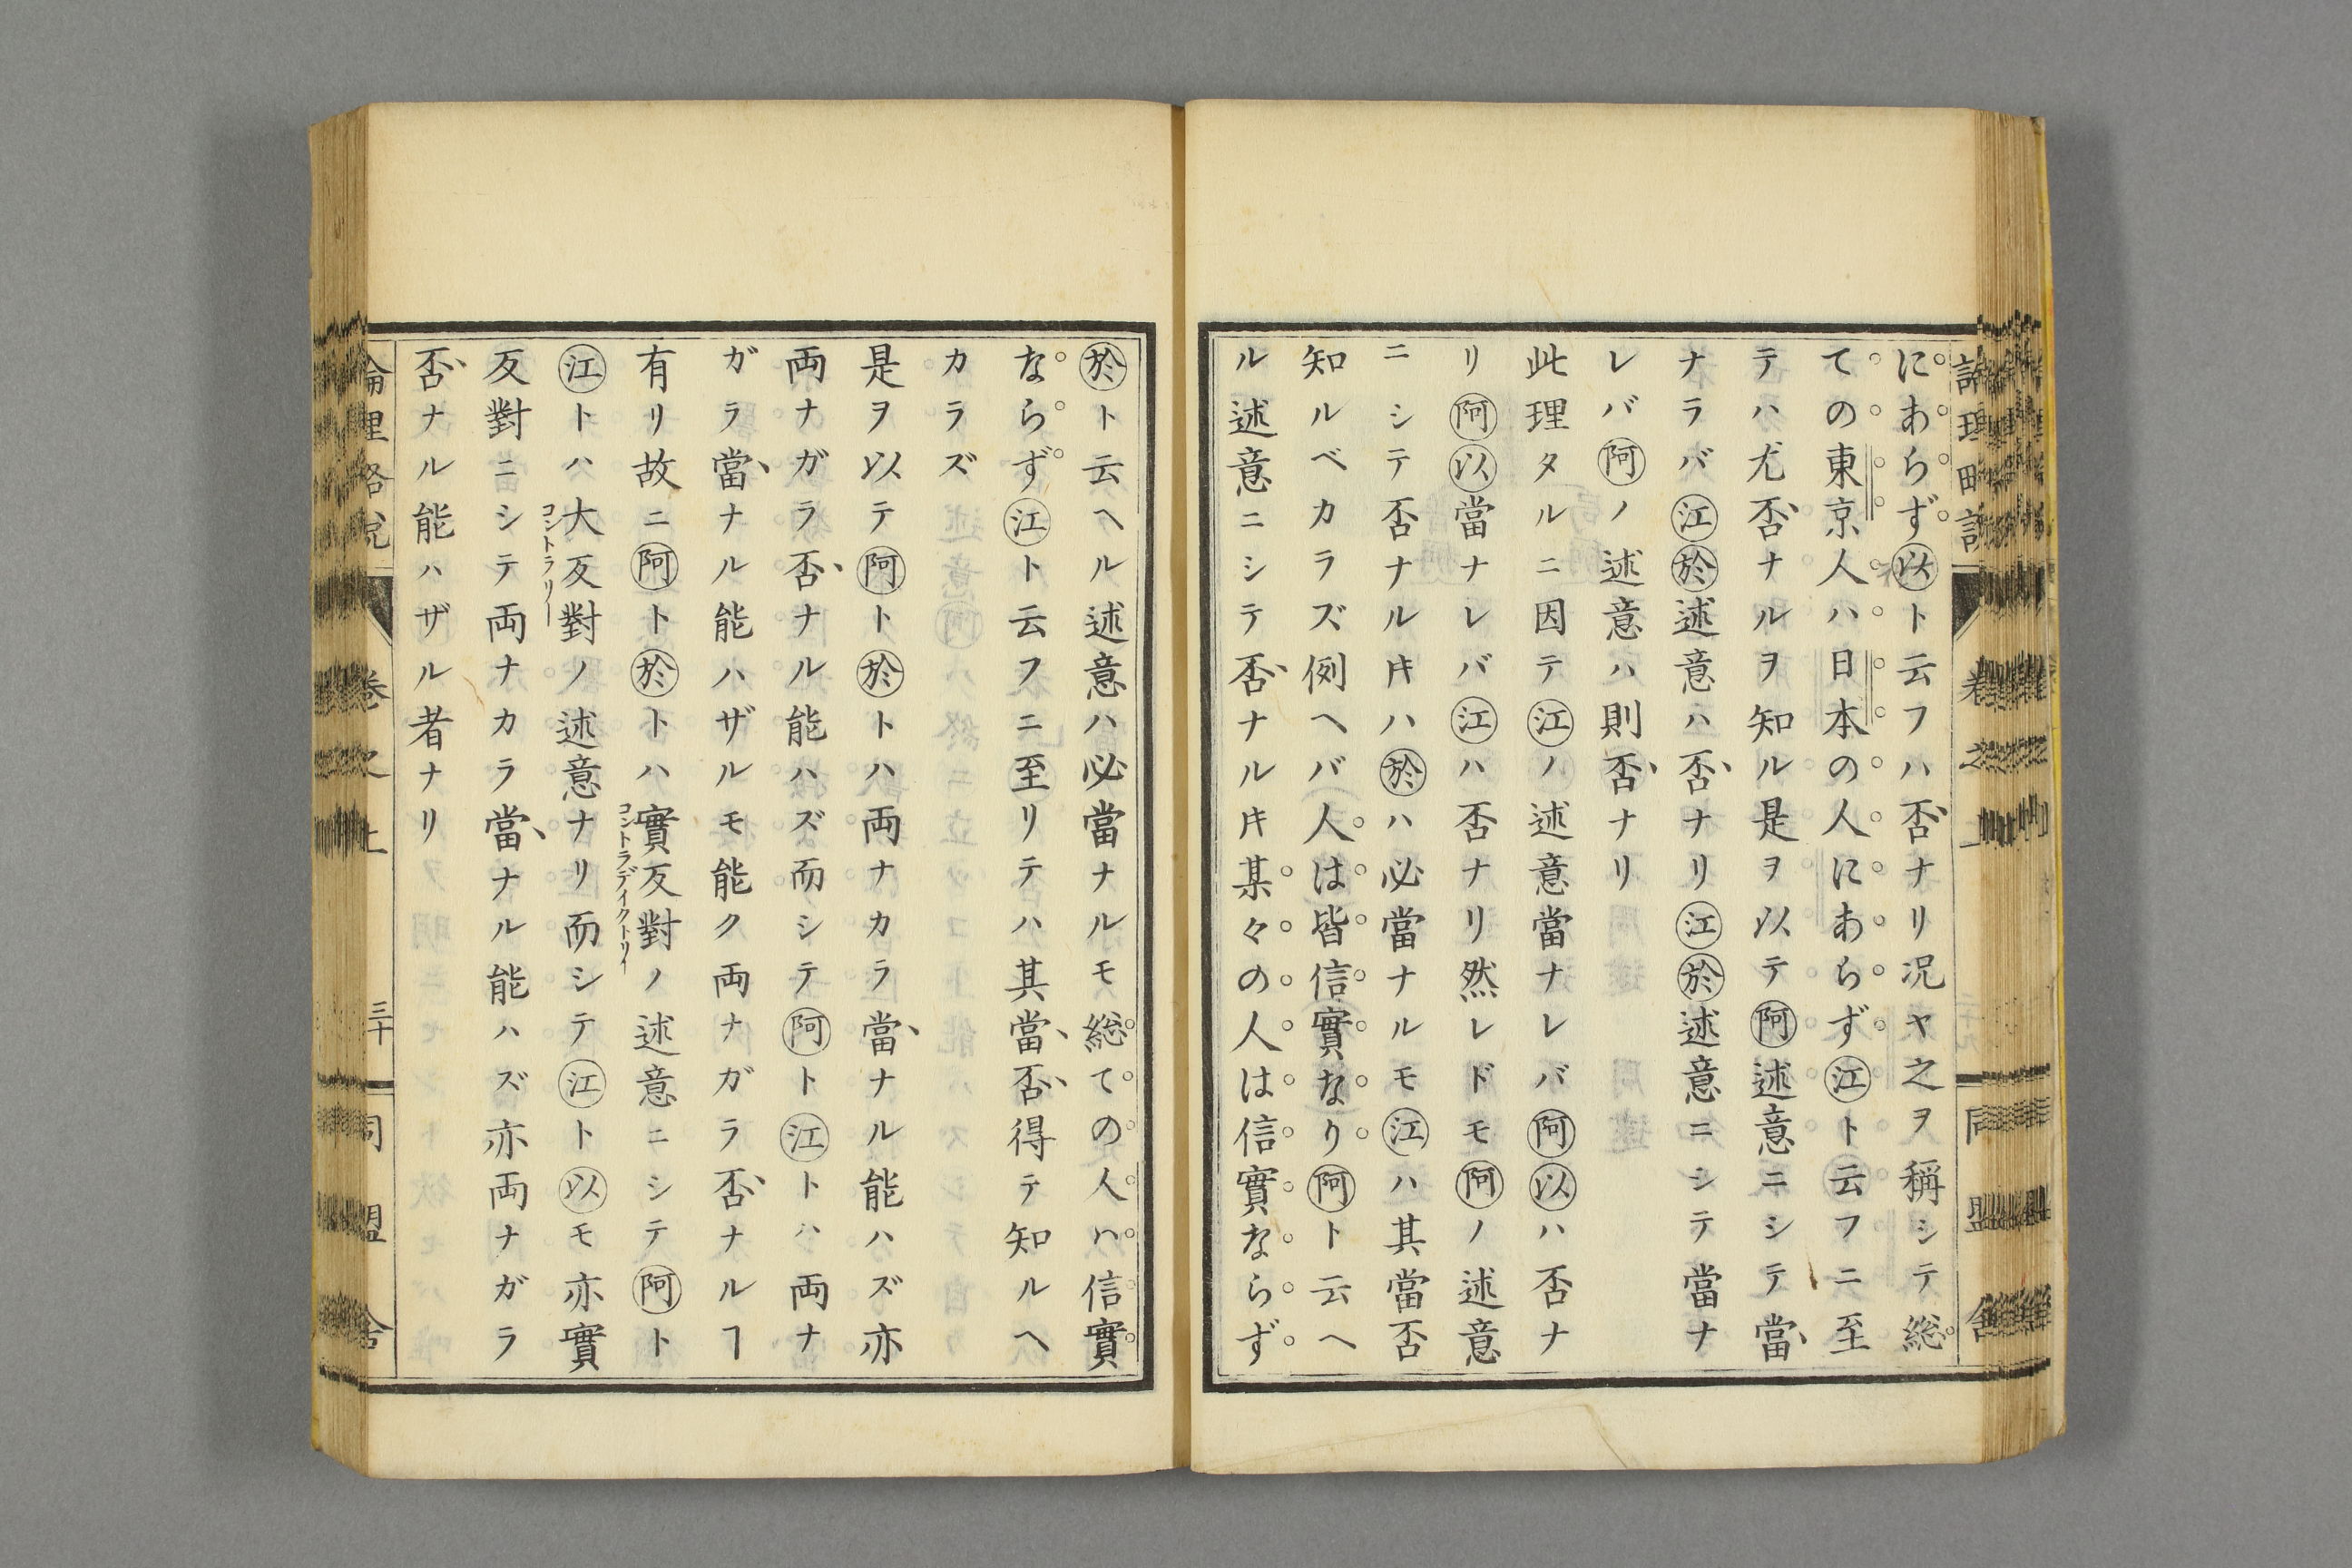 にあらず㋑以ト云フハ否ナリ況ヤ之ヲ稱シテ総
ての東京人ハ日本の人にあらず江ト云フニ至
テハ尤否ナルヲ知ル是ヲ以テ阿述意ニシテ當
ナラバ江於述意ハ否ナリ江於述意ニシテ當ナ
レバ阿ノ述意ハ則否ナリ
此理タルニ因テ江ノ述意當ナレバ阿以ハ否ナ
リ阿以當ナレバ江ハ否ナリ然レドモ阿ノ述意
ニシテ否ナル𪜈ハ於ハ必當ナルモ江ハ其當否
知ルベカラズ例ヘバ人は皆信實なり阿ト云ヘ
ル述意ニシテ否ナル𪜈某々の人は信實ならず
於ト云ヘル述意ハ必當ナルモ総ての人ハ信實
ならず江ト云フニ至リテハ其當否得テ知ルヘ
カラズ
是ヲ以テ阿ト於トハ両ナカラ當ナル能ハズ亦
両ナガラ否ナル能ハズ而シテ阿ト江トハ両ナ
ガラ當ナル能ハザルモ能ク両ナガラ否ナルヿ
有リ故ニ阿ト於トハ實反對ノ述意ニシテ阿ト
コントラデイクトリイ
江トハ大反對ノ述意ナリ而シテ江ト以モ亦實
コントラリー
反對ニシテ両ナカラ當ナル能ハズ亦両ナガラ
否ナル能ハザル者ナリ
卷之上
三十
同盟舍